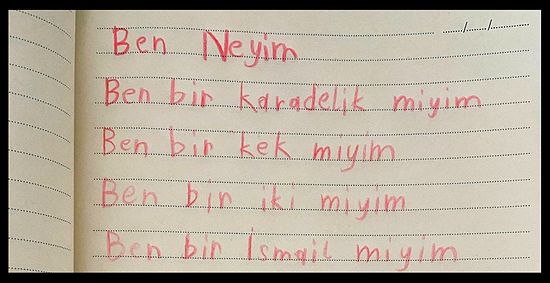 Ben Neyim
Ben bir karadelik miyim
Ben bir kek miyim
Ben bir iki miyim
Ben bir İsmail miyim